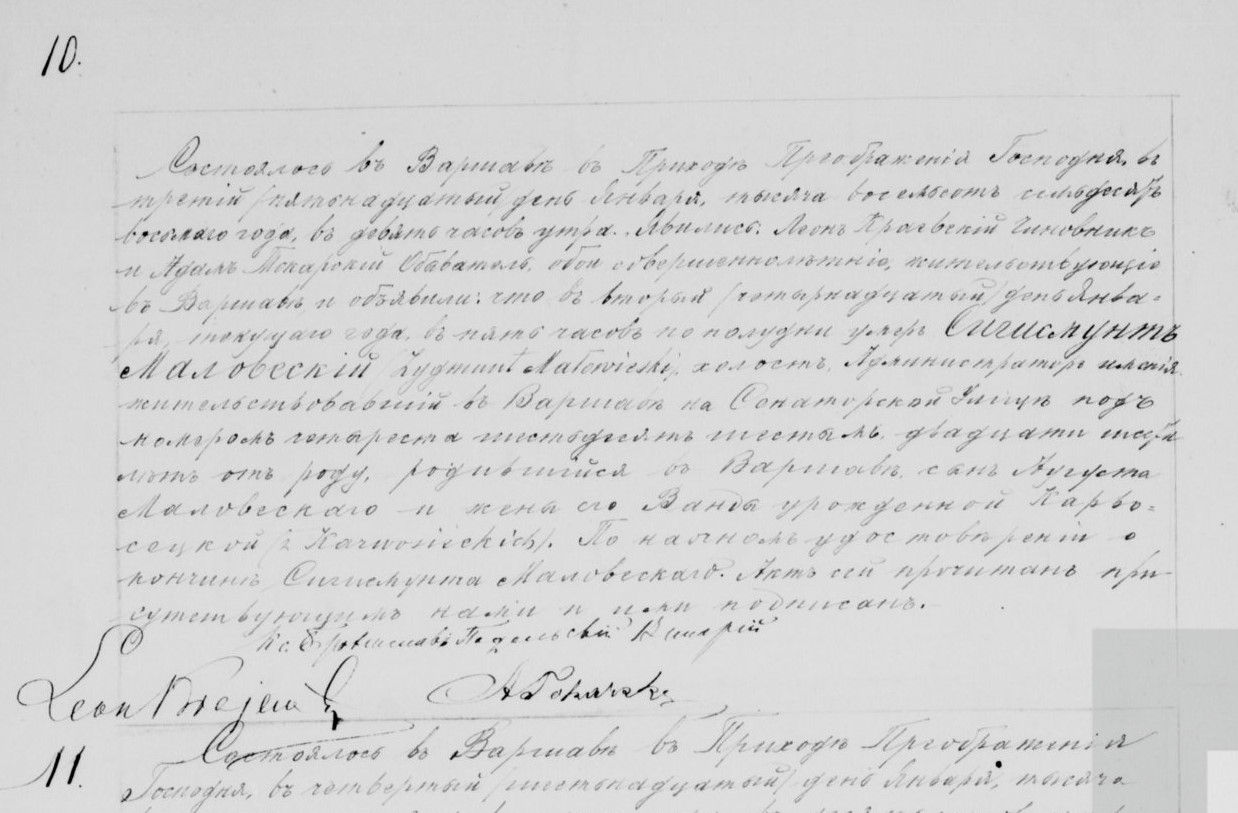 10.
Состоялось въ Варшавѣ въ Приходѣ Преображенія Господня, въ
третій /пятьнадцатый/ день Января, тысяча восемьсотъ семьдесятъ
восьмаго года, въ девять часовъ утра. Явились: Леонъ Краевскій Чиновникъ
и Адамъ Обыватель, обои совершеннолѣтніе, жительствующіе
въ Варшавѣ, и объявили: что въ вторый /четырнадцатый/ день Янва-
ря, текущаго года, въ пять часовъ по полудни умеръ Сигисмунтъ
Маловескій /Zygmunt Małowieski/, холостъ, Администраторъ имѣнія
жительствовавшій въ Варшавѣ на Сенаторской Улицѣ подъ
номеромъ четыреста шестьдесятъ шестымъ, двадцати шести
лѣтъ отъ роду, родившійся въ Варшавѣ, сынъ Августа
Маловескаго и жены его Ванды урожденной Карво-
сецкой /z Karwosieckich/. По наячномъ удостовѣреніи о
кончинѣ Сигисмунта Маловескаго. Актъ сей прочитанъ при-
сутствующимъ нами и ими подписанъ.
Кс. Викарій
Leon
А
11.
Состоялось въ Варшавѣ въ Приходѣ Преображенія
Господня, въ четвертый /шестьнадцатый/ день Января, тысяча